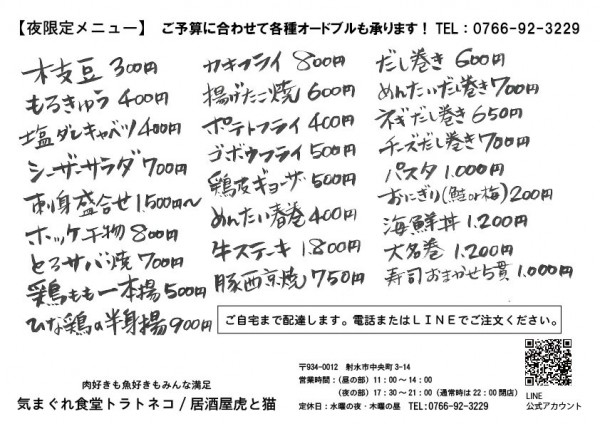 【夜限定メニュー】 ご予算に合わせて各種オードブルも承ります！ TEL：0766-92-3229
木支豆 300円
もろきゅう 400円
塩ダレキャベツ 400円
シーザーサラダ 700円
刺身盛合せ 1,500円〜
ホッケ干物 800円
とろサバ焼 700円
鶏もも一本揚 500円
ひな鶏の半身揚 900円
カキフライ 800円
揚げたこ焼 600円
ポテトフライ 400円
ゴボウフライ 500円
鶏皮ギョーザ 500円
めんたい春巻 400円
牛ステーキ 1.800円
豚西京焼 750円
だし巻き 600円
めんたいだし巻き 700円
ネギだし巻き 650円
チーズだし巻き 700円
パスタ 1.000円
おにぎり(鮭or梅) 200円
海鮮丼 1.200円
大名巻 1.200円
寿司おまかせ5貫 1.000円
ご自宅まで配達します。電話またはＬＩＮＥでご注文ください。
肉好きも魚好きもみんな満足
気まぐれ食堂トラトネコ / 居酒屋虎と猫
〒934-0012 射水市中央町 3-14
営業時間：（昼の部）11：00～14：00
（夜の部）17：30～21：00（通常時は 22：00 閉店）
定休日：水曜の夜・木曜の昼 TEL:0766-92-3229
LINE
公式アカウント